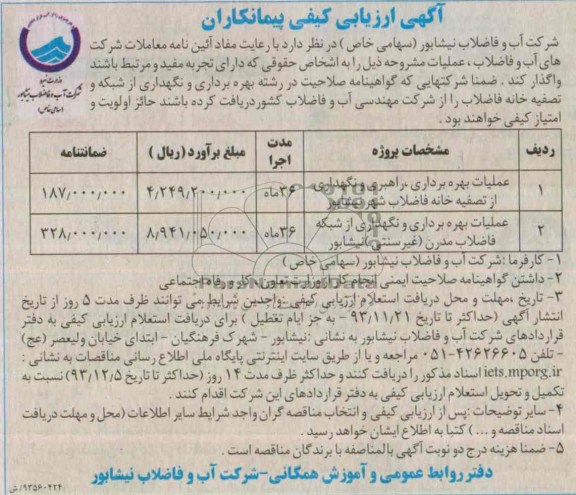 آگهی ارزیابی کیفی پیمانکاران
شرکت آب و فاضلاب نیشابور (سهامی خاص) در نظر دارد با رعایت مفاد آئین نامه معاملات شرکت
های آب و فاضلاب، عملیات مشروحه ذیل را به اشخاص حقوقی که دارای تجربه مفید و مرتبط باشند
واگذار کند. ضمنا شرکتهایی که گواهینامه صلاحیت در رشته بهره برداری و نگهداری از شبکه و
تصفیه خانه فاضلاب را از شرکت مهندسی آب و فاضلاب کشور دریافت کرده باشند حائز اولویت و
امتیاز کیفی خواهند بود.
وزارت نیرو
شرکت آب و فاضلاب نیشابور
(سهامی خاص)
ردیف مشخصات پروژه مدت اجرا مبلغ برآورد (ریال) ضمانتنامه
۱ عملیات بهره برداری، راهبری و نگهداری از تصفیه خانه فاضلاب شهر نیشابور ۳۶ماه ۴٫۲۴۹٫۲۰۰٫۰۰۰ ۱۸۷٫۰۰۰٫۰۰۰
۲ عملیات بهره برداری و نگهداری از شبکه فاضلاب مدرن (غیرسنتی) نیشابور ۳۶ماه ۸٫۹۴۱٫۰۵۰٫۰۰۰ ۳۲۸٫۰۰۰٫۰۰۰
۱- کارفرما: شرکت آب و فاضلاب نیشابور (سهامی خاص)
۲- داشتن گواهینامه صلاحیت ایمنی انجام کار از وزارت تعاون، کار و رفاه اجتماعی
۳- تاریخ، مهلت و محل دریافت استعلام ارزیابی کیفی: واجدین شرایط می توانند ظرف مدت ۵ روز از تاریخ
انتشار آگهی (حداکثر تا تاریخ ۹۳/۱۱/۲۱ - به جز ایام تعطیل) برای دریافت استعلام ارزیابی کیفی به دفتر
قراردادهای شرکت آب و فاضلاب نیشابور به نشانی: نیشابور - شهرک فرهنگیان - ابتدای خیابان ولیعصر (عج)
- تلفن ۴۲۶۲۶۶۰۵-۰۵۱ مراجعه و یا از طریق سایت اینترنتی پایگاه ملی اطلاع رسانی مناقصات به نشانی:
iets.mporg.ir اسناد مذکور را دریافت کنند و حداکثر ظرف مدت ۱۴ روز (حداکثر تا تاریخ ۹۳/۱۲/۵) نسبت به
تکمیل و تحویل استعلام ارزیابی کیفی به دفتر قراردادهای این شرکت اقدام کنند.
۴- سایر توضیحات: پس از ارزیابی کیفی و انتخاب مناقصه گران واجد شرایط سایر اطلاعات (محل و مهلت دریافت
اسناد مناقصه و ...) کتبا به اطلاع ایشان خواهد رسید.
۵- ضمنا هزینه درج دو نوبت آگهی بالمناصفه با برندگان مناقصه است.
دفتر روابط عمومی و آموزش همگانی-شرکت آب و فاضلاب نیشابور
۹۳۵۶۰۴۲۴/ش